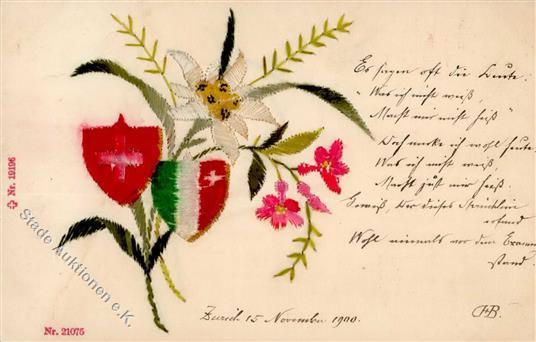 Es sagen oft die Leute:
"Was ich nicht weiß,
Macht mir nicht heiß"
Doch merke ich wohl heute,
Was ich nicht weiß,
Macht just mir heiß.
Gewiß, der dieses Sprüchlein
erfand
Wohl niemals vor dem Examen
stand.
HB.
Zürich 15 November 1900.
Nr. 19196
Nr. 21075
Stade Auktionen e.K.